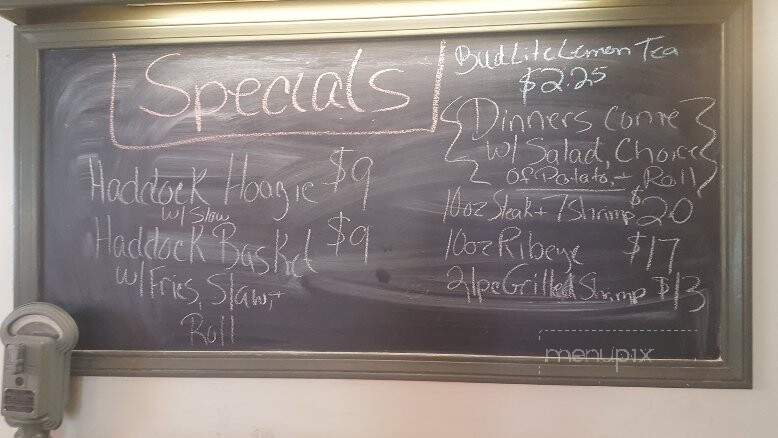 Specials
Haddock Hoagie $9
w/ Slaw
Haddock Basket $9
w/ Fries, Slaw, +
Roll
Bud Lite Lemon Tea
$2.25
Dinners come
w/ Salad, Choice
of Potato, + Roll
10oz Steak + 7 Shrimp $20
10oz Ribeye $17
21pc Grilled Shrimp $13
menupix